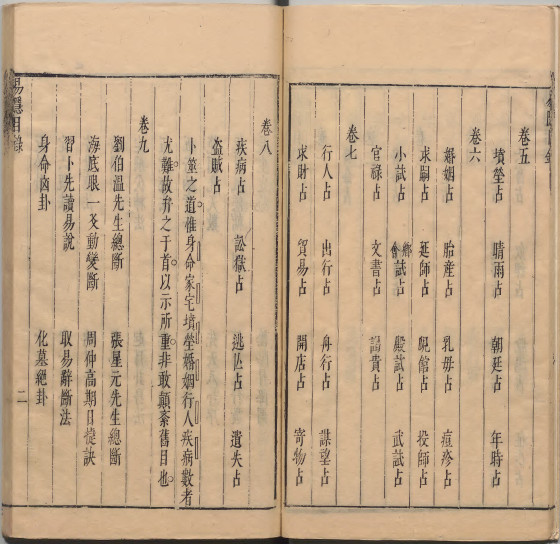 卷五
墳塋占 晴雨占 朝廷占 年時占
卷六
婚姻占 胎產占 乳毋占 痘疹占
求嗣占 延師占 覘館占 投師占
小試占 鄉會試占 殿試占 武試占
官祿占 文書占 謁貴占
卷七
行人占 出行占 舟行占 謀望占
求財占 貿易占 開店占 寄物占
卷八
疾病占 訟獄占 逃亾占 遺失占
盜賊占
卜筮之道。惟身命家宅墳塋婚姻行人疾病數者
尤難。故弁之于首。以示所重。非敢顛紊舊目也。
卷九
劉伯溫先生總斷 張星元先生總斷
海底眼一爻動變斷 周仲高期日捷訣
習卜先讀易說 取易辭斷法
身命凶卦 化墓絕卦
易隱目錄 二